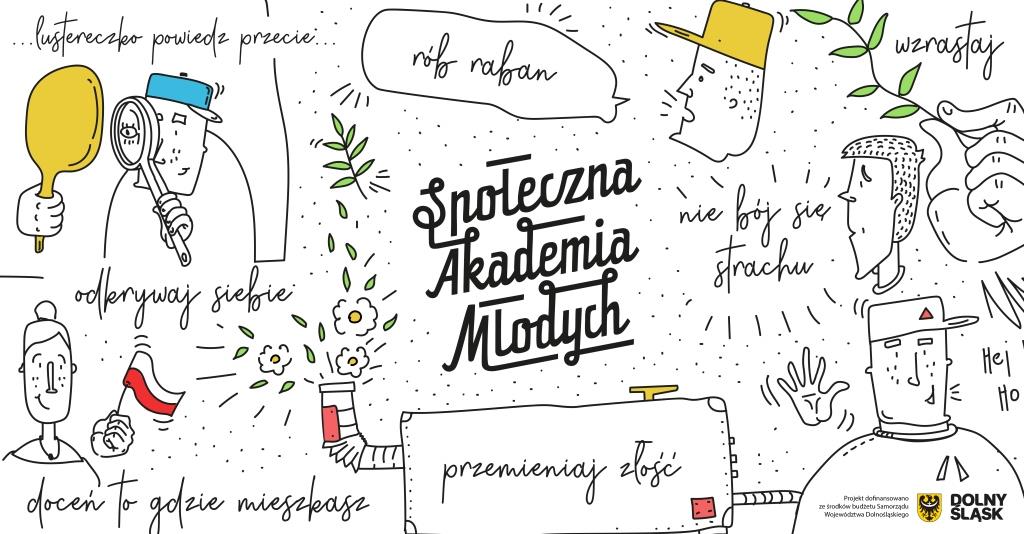 ...lustereczko powiedz przecie...
rób raban
wzrastaj
Społeczna
Akademia
Młodych
nie bój się
strachu
odkrywaj siebie
Hej
Ho
przemieniaj złość
doceń to gdzie mieszkasz
Projekt dofinansowano
ze środków budżetu Samorządu
Województwa Dolnośląskiego
DOLNY
ŚLĄSK